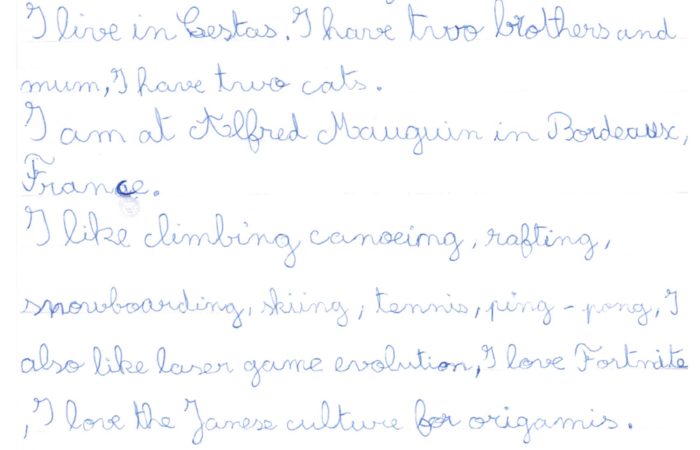 I live in Cestas. I have two brothers and
mum, I have two cats.
I am at Alfred Mauguin in Bordeaux,
France.
I like climbing canoeing, rafting,
snowboarding, skiing, tennis, ping-pong, I
also like laser game evolution, I love Fortnite
, I love the Janese culture for origamis.